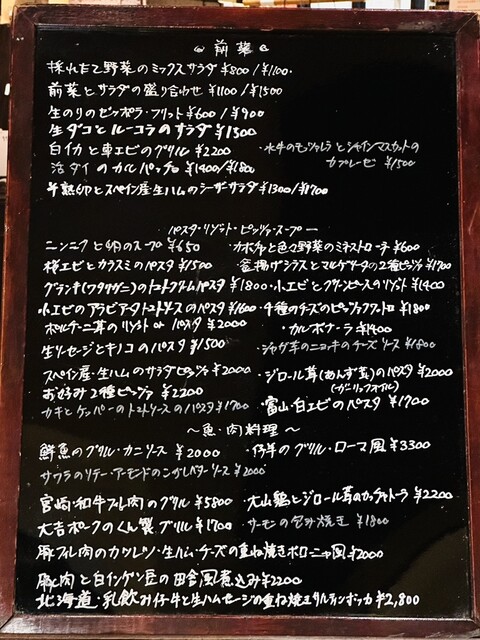 前菜
採れたて野菜のミックスサラダ ¥800/¥1100
前菜とサラダの盛り合わせ ¥1100/¥1500
生のりのゼッポラ・フリット ¥600/¥900
生ダコとルーコラのサラダ ¥1300
白イカと車エビのグリル ¥2200 ・水牛のモッツァレラとシャインマスカットの
カプレーゼ ¥1500
活ダイのカルパッチョ ¥1400/¥1800
半熟卵とスペイン産生ハムのシーザサラダ ¥1300/¥1700
パスタ・リゾット・ピッツァ・スープ
ニンニクと卵のスープ ¥650 ・カボチャと色々野菜のミネストローネ ¥600
桜エビとカラスミのパスタ ¥1500 ・釜揚げシラスとマルゲリータの2種ピッツァ ¥1700
グランキ(ワタリガニ)のトマトクリームパスタ ¥1800 ・小エビとグリンピースのリゾット ¥1400
小エビのアラビアータトマトソースのパスタ ¥1600 ・4種のチーズのピッツァ ¥1800
ポルチーニ茸のリゾット or パスタ ¥2000 ・カルボナーラ ¥1400
生ソーセージとキノコのパスタ ¥1500 ・ジャガ芋のニョッキのチーズソース ¥1800
スペイン産・生ハムのサラダピッツァ ¥2000 ・ジロール茸(あんず茸)のパスタ ¥2000
(ガーリックオイル)
お好み2種ピッツァ ¥2200
カキとケッパーのトマトソースのパスタ ¥1700 ・富山・白エビのパスタ ¥1700
〜魚・肉料理〜
鮮魚のグリル・カニソース ¥2000 ・仔羊のグリル・ローマ風 ¥3300
サワラのソテー・アーモンドのこがしバターソース ¥2000
宮崎・和牛フィレ肉のグリル ¥5800 ・大山鶏とジロール茸のカッチャトーラ ¥2200
大吉ポークのくん製グリル ¥1700 ・サーモンの包み焼き ¥1800
豚フィレ肉のカツレツ・生ハム・チーズの重ね焼きボローニャ風 ¥2000
豚肉と白インゲン豆の田舎風煮込み ¥2200
北海道・乳飲み仔牛と生ハムセージの重ね焼きサルティンボッカ ¥2,800